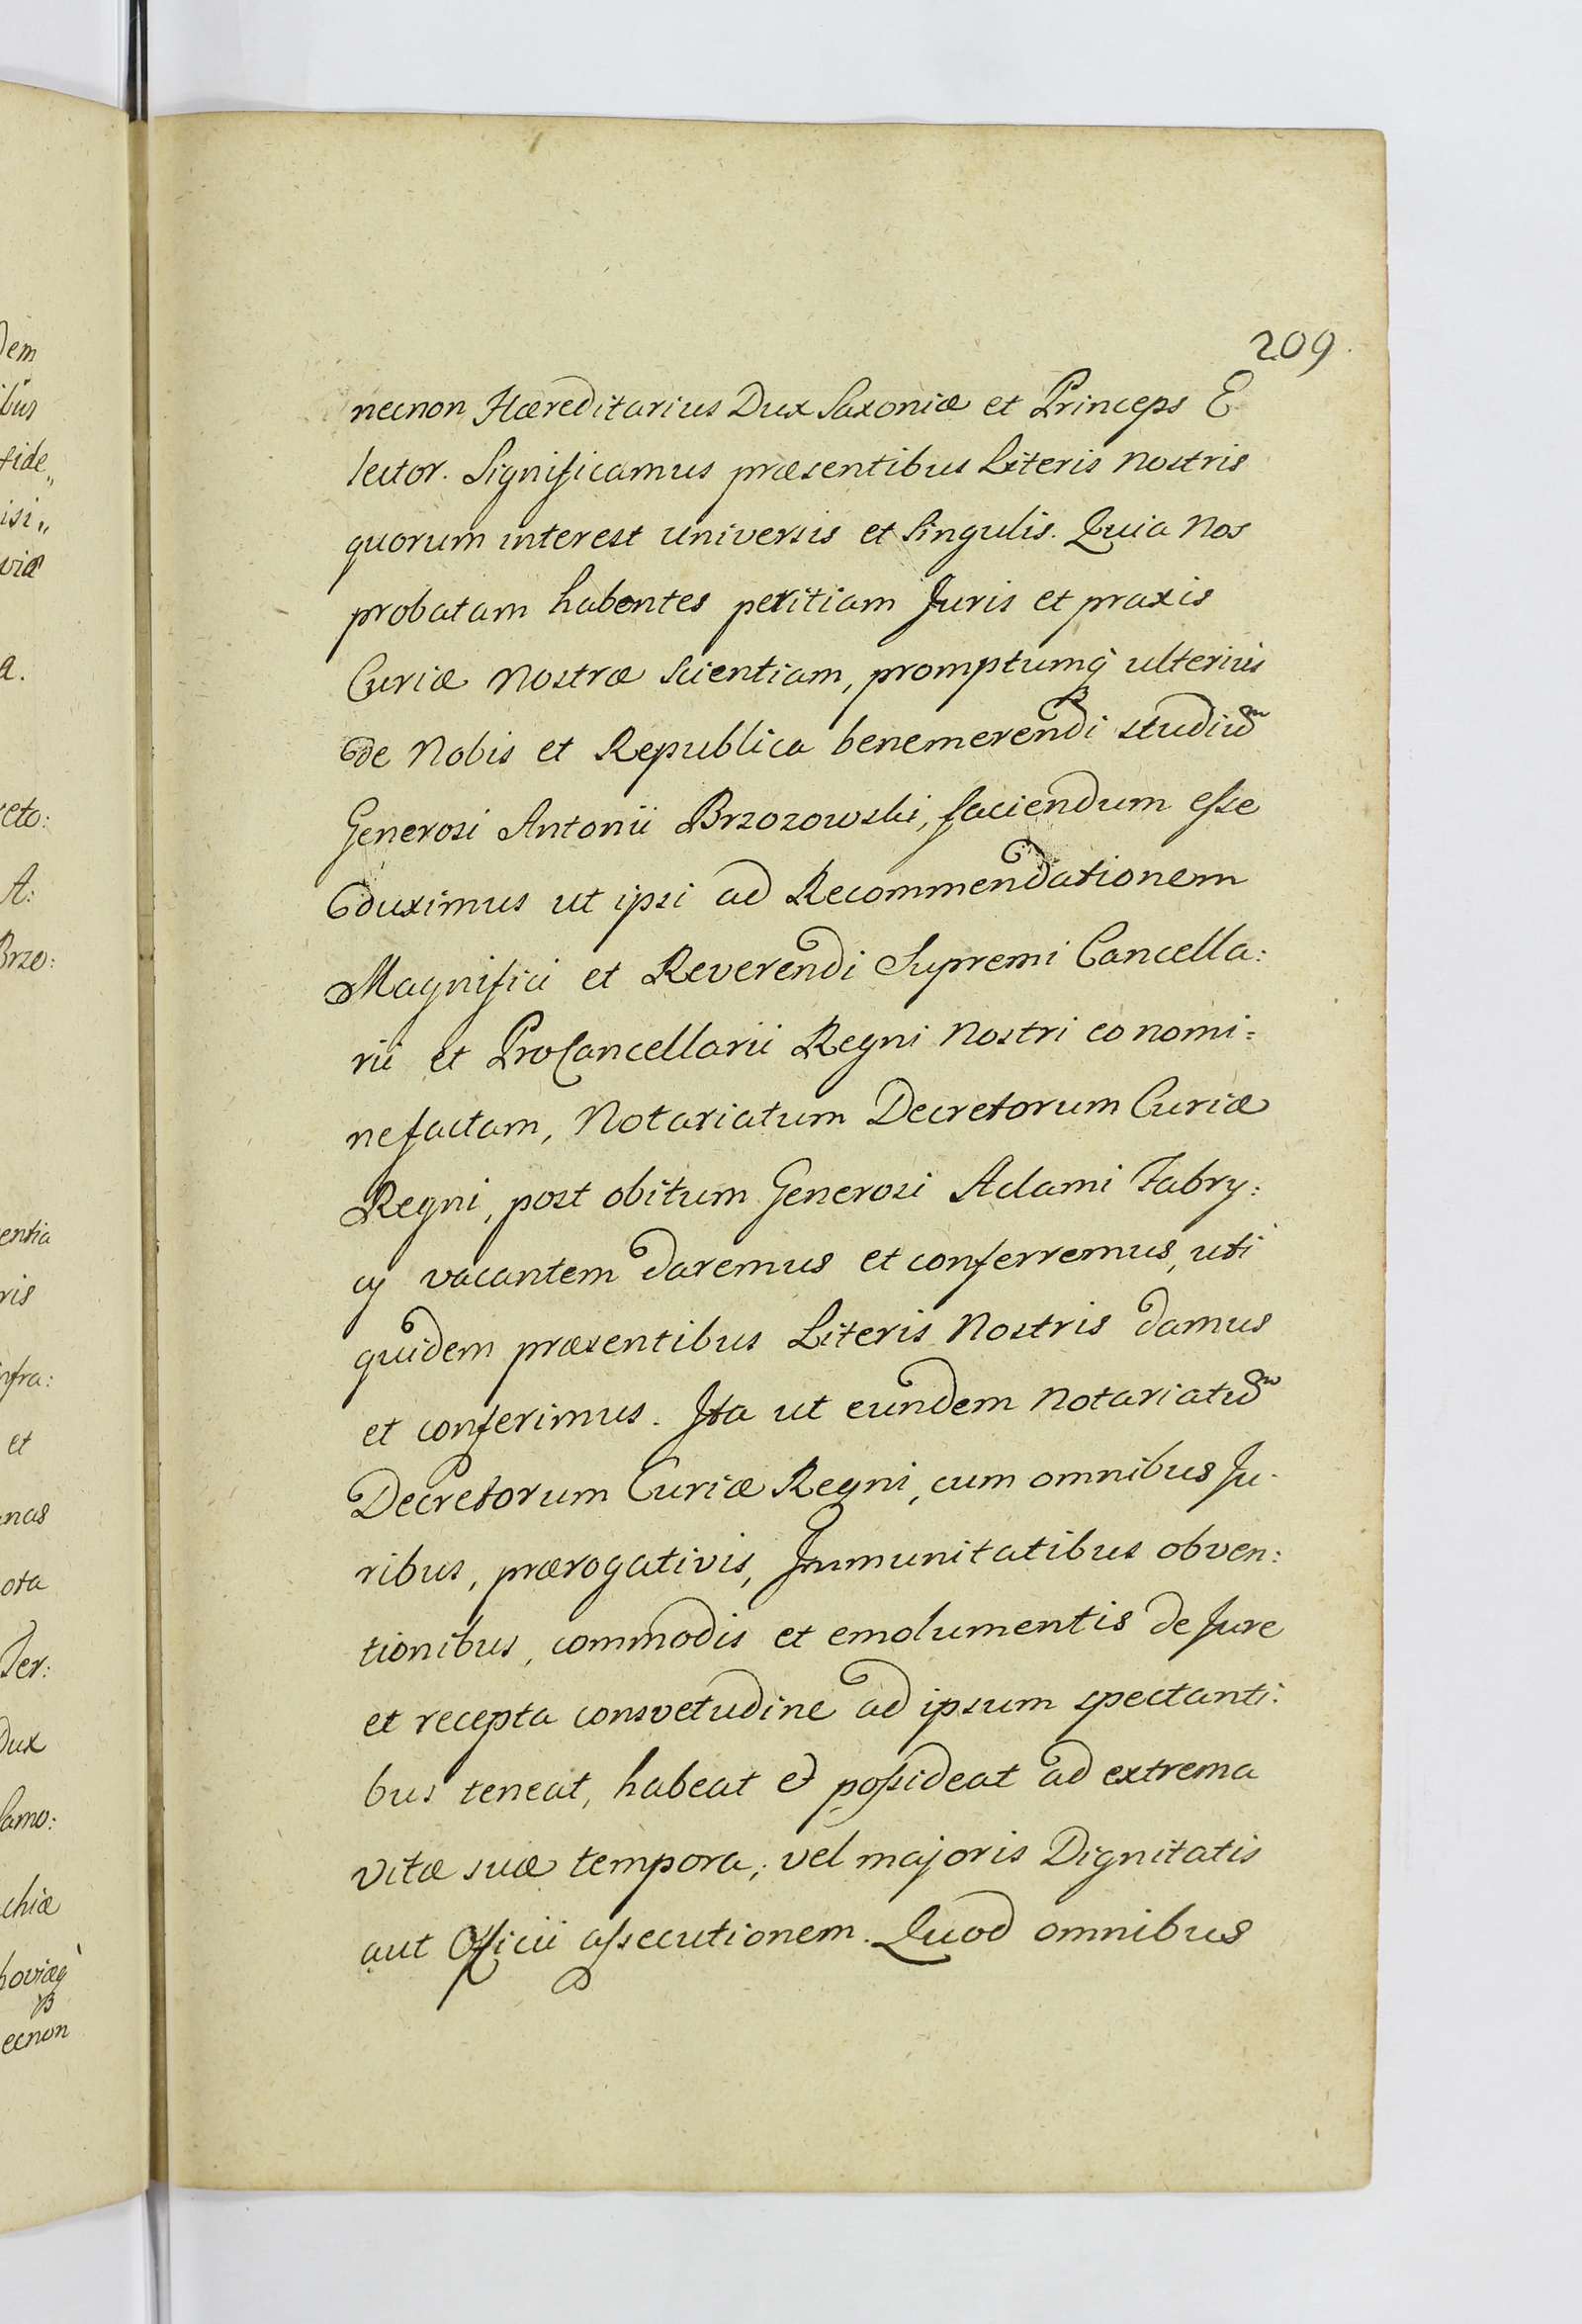 209.
necnon Hæreditarius Dux Saxoniæ et Princeps E
lector. Significamus præsentibus Literis Nostris
quorum interest universis et Singulis. Quia Nos
probatam habentes peritiam Juris et praxis
Curiæ Nostræ Scientiam, promptumq̀ ulterius
de Nobis et Republica benemerendi studiũ
Generosi Antonii Brzozowski, faciendum esse
duximus ut ipsi ad Recommendationem
Magnifici et Reverendi Supremi Cancella:
rii et ProCancellarii Regni Nostri eo nomi=
ne factam, Notariatum Decretorum Curiæ
Regni, post obitum Generosi Adami Fabry:
cy vacantem daremus et conferremus, uti
quidem præsentibus Literis Nostris damus
et conferimus. Ita ut eundem Notariatũ
Decretorum Curiæ Regni, cum omnibus Ju-
ribus, prærogativis, Immunitatibus obven:
tionibus, commodis et emolumentis de Jure
et recepta consvetudine ad ipsum spectanti:
bus teneat, habeat et possideat ad extrema
vitæ suæ tempora, vel majoris Dignitatis
aut Officii assecutionem. Quod omnibus